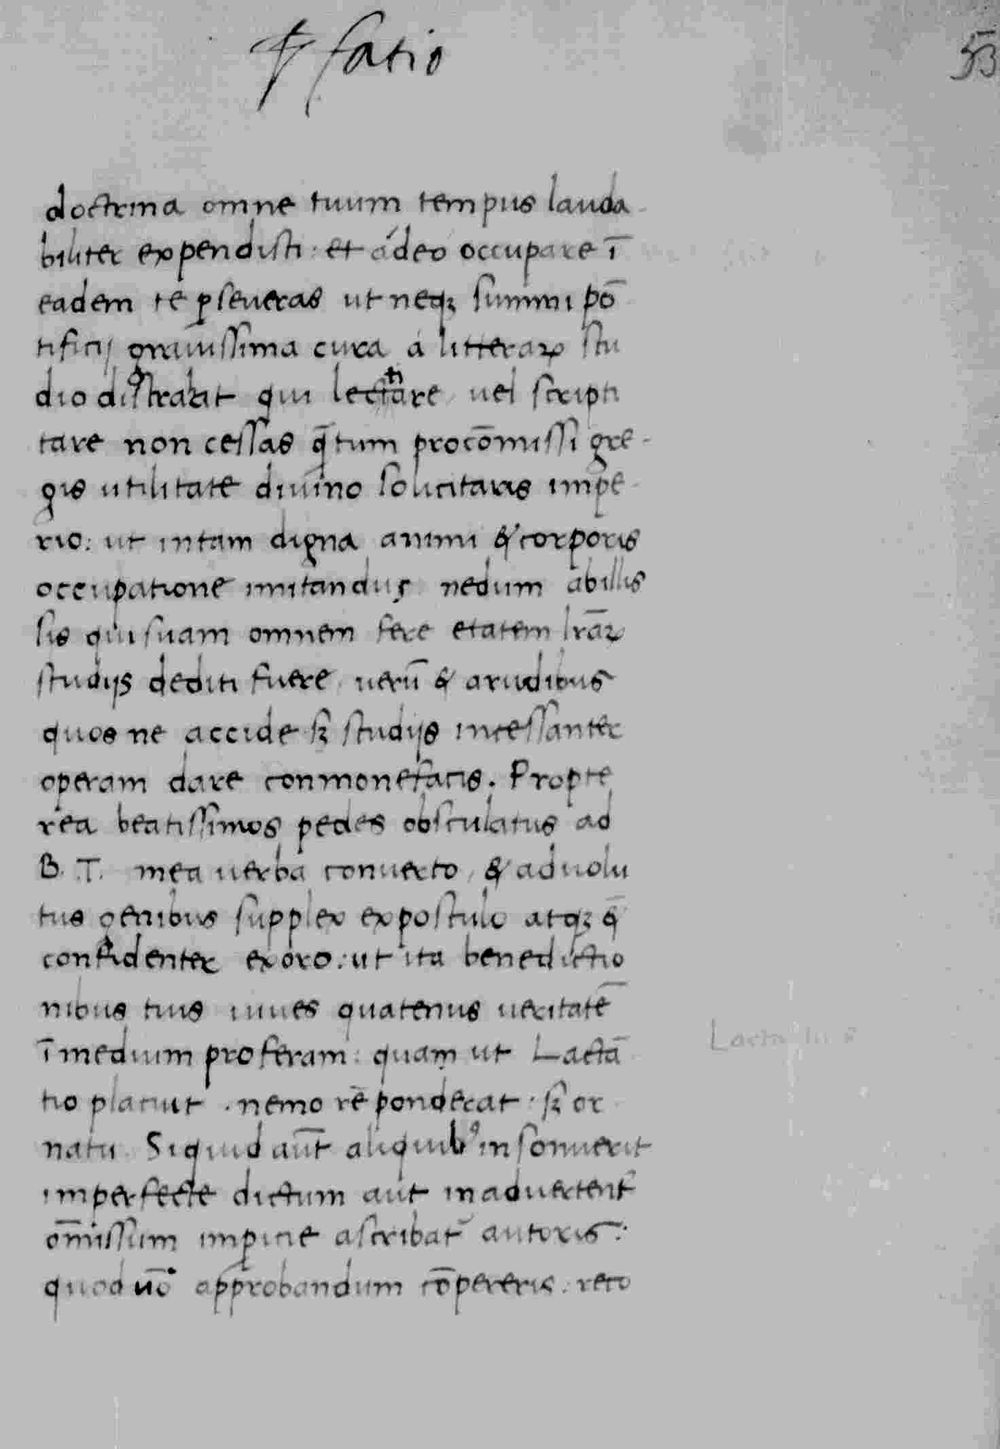 p̄fatio
53
doctrina omne tuum tempus lauda-
biliter expendisti: et ádeo occupare ī
eadem te ꝑseueras ut neqꝫ summi pō
tificij grauissima cura á litteraꝝ stu
dio distrahat qui lectitare uel scripti
tare non cessas q̄tum procōmissi gre-
gis utilitate diuino solicitaris impe-
rio: ut intam digna animi & corporis
occupatione imitandus nedum abillis
sis qui suam omnem fere etatem lr̄aꝝ
studijs dediti fuere uerū & arudibus
quos ne accide sꝫ studijs incessanter
operam dare conmonefacis. Propte
rea beatissimos pedes obsculatus ad
B. T. mea uerba conuerto, & aduolu
tus genibus supplex expostulo atqꝫ q̄
confidenter exoro: ut ita benedictio
nibus tuis iuues quatenus ueritatē
ī medium proferam: quam ut Lactā
tio placuit . nemo rē ponderat: sꝫ or
natu. Siquid aut̄ aliquibꝰ insonuerit
imperfecte dictum aut inaduertent̄
om̄issum imp̱itie ascribat᷑ autoris:
quod uō approbandum cōpereris. reto